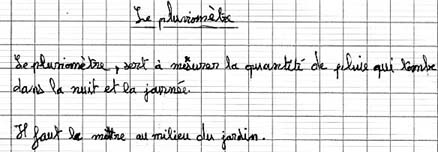 Le pluviomètre
Le pluviomètre, sert à mesurer la quantité de pluie qui tombe
dans la nuit et la journée.
Il faut le mettre au milieu du jardin.